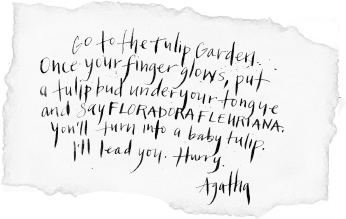 Go to the Tulip Garden.
Once your finger glows, put
a tulip bud under your tongue
and say FLORADORA FLEURIANA.
You'll turn into a baby tulip.
I'll lead you. Hurry.
Agatha